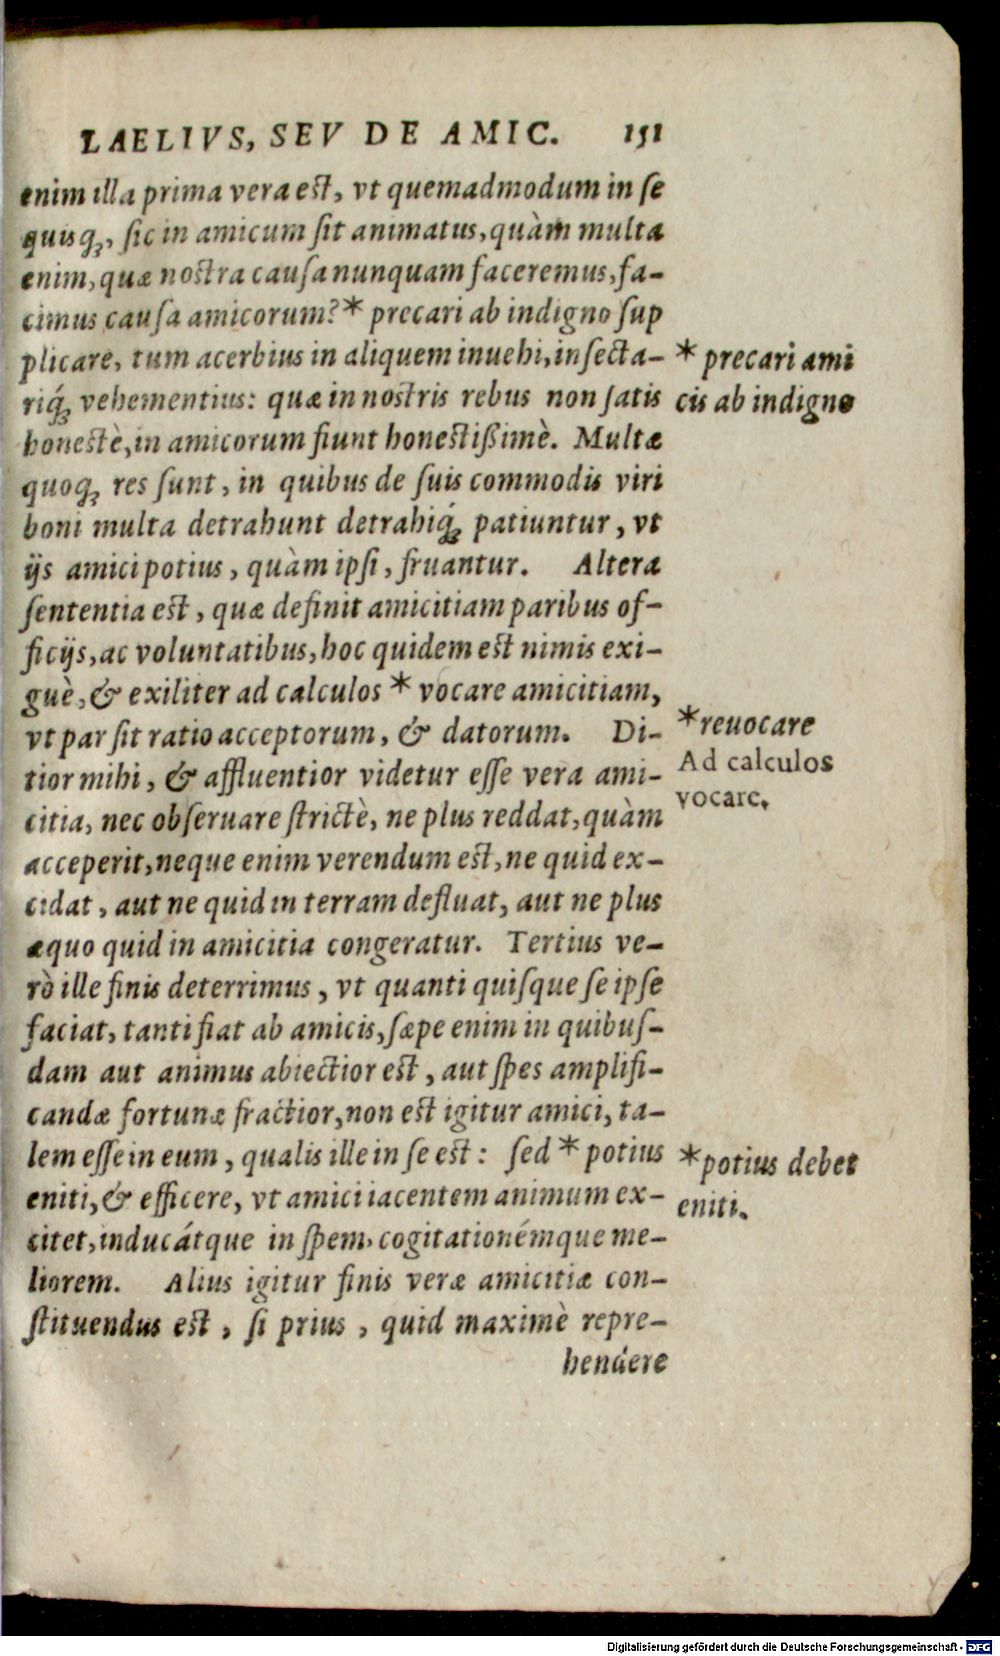 LAELIVS, SEV DE AMIC. 151
enim illa prima vera est, vt quemadmodum in se
quisq;, sic in amicum sit animatus, quàm multa
enim, quæ nostra causa nunquam faceremus, fa-
cimus causa amicorum? * precari ab indigno sup
plicare, tum acerbius in aliquem inuehi, insecta-
riq́; vehementius: quæ in nostris rebus non satis
honestè, in amicorum fiunt honestißimè. Multæ
quoq; res sunt, in quibus de suis commodis viri
boni multa detrahunt detrahiq́; patiuntur, vt
ijs amici potius, quàm ipsi, fruantur. Altera
sententia est, quæ definit amicitiam paribus of-
ficijs, ac voluntatibus, hoc quidem est nimis exi-
guè, & exiliter ad calculos * vocare amicitiam,
vt par sit ratio acceptorum, & datorum. Di-
tior mihi, & affluentior videtur esse vera ami-
citia, nec obseruare strictè, ne plus reddat, quàm
acceperit, neque enim verendum est, ne quid ex-
cidat, aut ne quid in terram defluat, aut ne plus
æquo quid in amicitia congeratur. Tertius ve-
rò ille finis deterrimus, vt quanti quisque se ipse
faciat, tanti fiat ab amicis, sæpe enim in quibus-
dam aut animus abiectior est, aut spes amplifi-
candæ fortunæ fractior, non est igitur amici, ta-
lem esse in eum, qualis ille in se est: sed * potius
eniti, & efficere, vt amici iacentem animum ex-
citet, inducátque in spem, cogitationémque me-
liorem. Alius igitur finis veræ amicitiæ con-
stituendus est, si prius, quid maximè repre-
hendere
* precari ami
cis ab indigno
* reuocare
Ad calculos
vocare.
* potius debet
eniti.
Digitalisierung gefördert durch die Deutsche Forschungsgemeinschaft - DFG